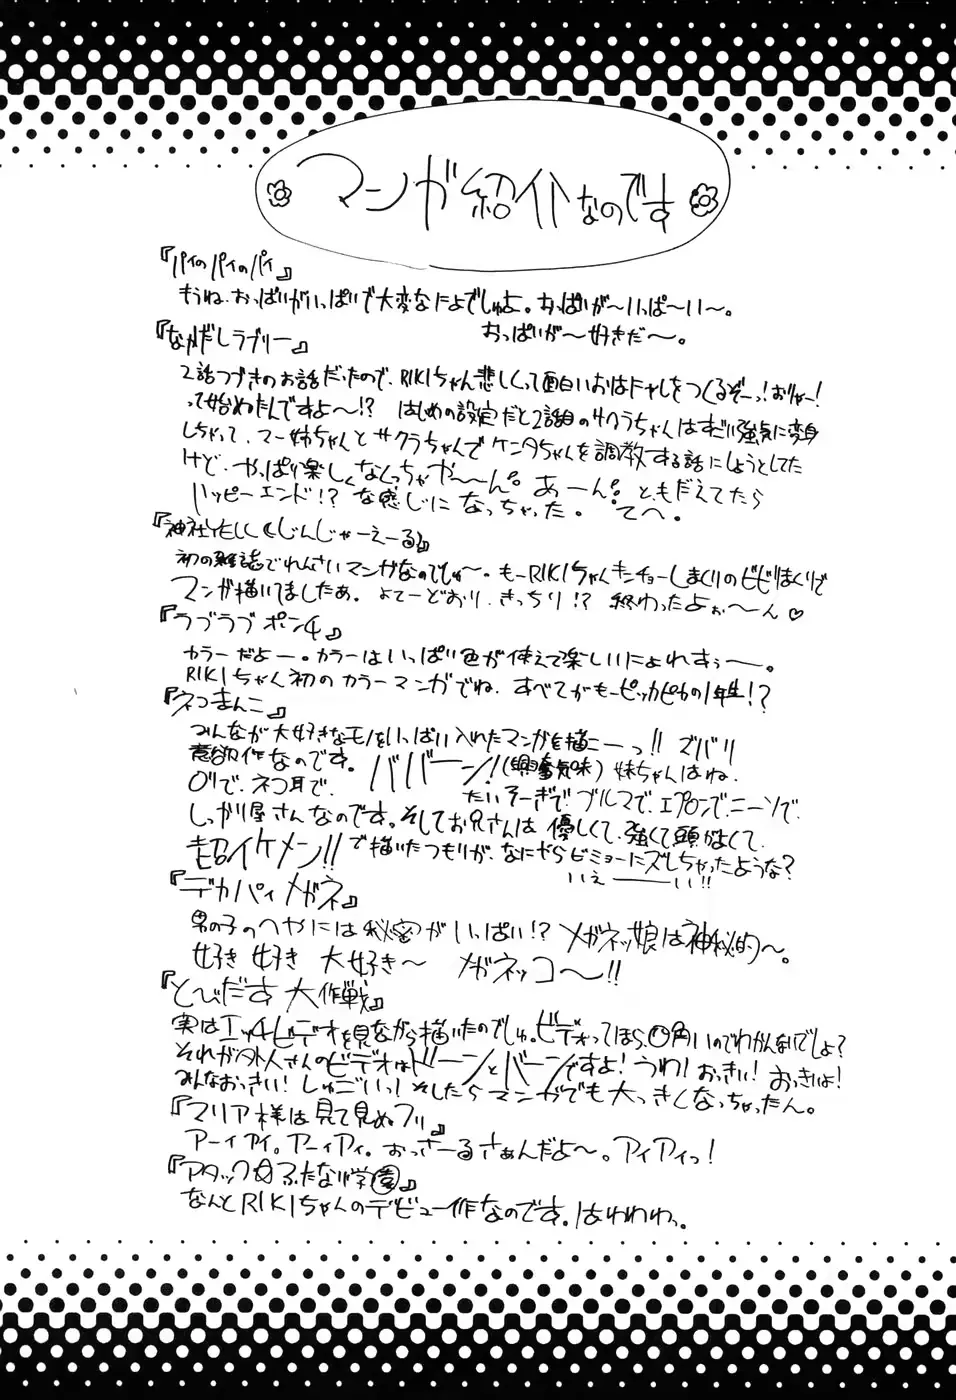 マンガ紹介なのです
『パイのパイのパイ』
もうね、おっぱいがいっぱいで大変なによでしゅよ。おっぱいが〜いっぱ〜い〜。
おっぱいが〜好きだ〜。
『なかだしラブリー』
2話つづきのお話だったので、RIKIちゃん悲しくって面白いおはナャしをつくるぞーっ!おりゃー!
って始めたんですよ〜!? はじめの設定だと2話目のサクラちゃんはすごい強気に変身
しちゃって、マー姉ちゃんとサクラちゃんでケンタちゃんを調教する話にしようとしてた
けど、やっぱり楽しくなくっちゃや〜〜ん。あーん。ともだえてたら
ハッピーエンド!?な感じになっちゃった。てへ。
『神社YELL(じんじゃーえーる)』
初の雑誌でれんさいマンガなのでしゅ〜。もーRIKIちゃんキンチョーしまくりのビビりまくりで
マンガ描いてましたぁ。よてーどおり、きっちり!?終わったよぉ〜ん♡
『ラブラブポンチ』
カラーだよー。カラーはいっぱい色が使えて楽しいにょれすぅー。
RIKIちゃん初のカラーマンガでね、すべてがもーピッカピカの1年生!?
『ネコまんこ』
みんなが大好きなモノをいっぱい入れたマンガを描こーっ!!ズバリ
意欲作なのです。ババーン!(興奮気味)妹ちゃんはね、
ロリで、ネコ耳で、たいそーぎで、ブルマで、エプロンで、ニーソで、
しっかり屋さんなのです。そしてお兄さんは優しくて、強くて頭がよくて、
超イケメン!!で描いたつもりが、なにやらビミョーにズレちゃったような?
いえーーい!!
『デカパイメガネ』
男の子のへやには秘密がいっぱい!?メガネッ娘は神秘的〜。
好き 好き 大好き〜 メガネッコ〜!!
『とびだす大作戦』
実はエッチビデオを見ながら描いたのでしゅ。ビデオってほら、〇角いのでわかんないでしょ?
それが外人さんのビデオはドーンとバーンですよ!うわ!おっきぃ!おっきぃよ!
みんなおっきい!しゅごいっ!そしたらマンガでも大っきくなっちゃったん。
『マリア様は見て見ぬフリ』
アーイアイ。アーイアイ。おっさーるさぁんだよ〜。アイアイっ!
『アタック☆ふたなり学園』
なんとRIKIちゃんのデビュー作なのです。はわわわっ。